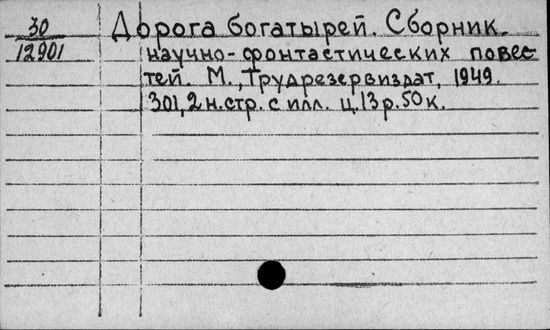 30
12901
Дорога богатырей. Сборник.
научно-фонтастических повес-
тей. М., Трудрезервиздат, 1949.
301, 2 н. стр. с илл. ц. 13 р. 50 к.